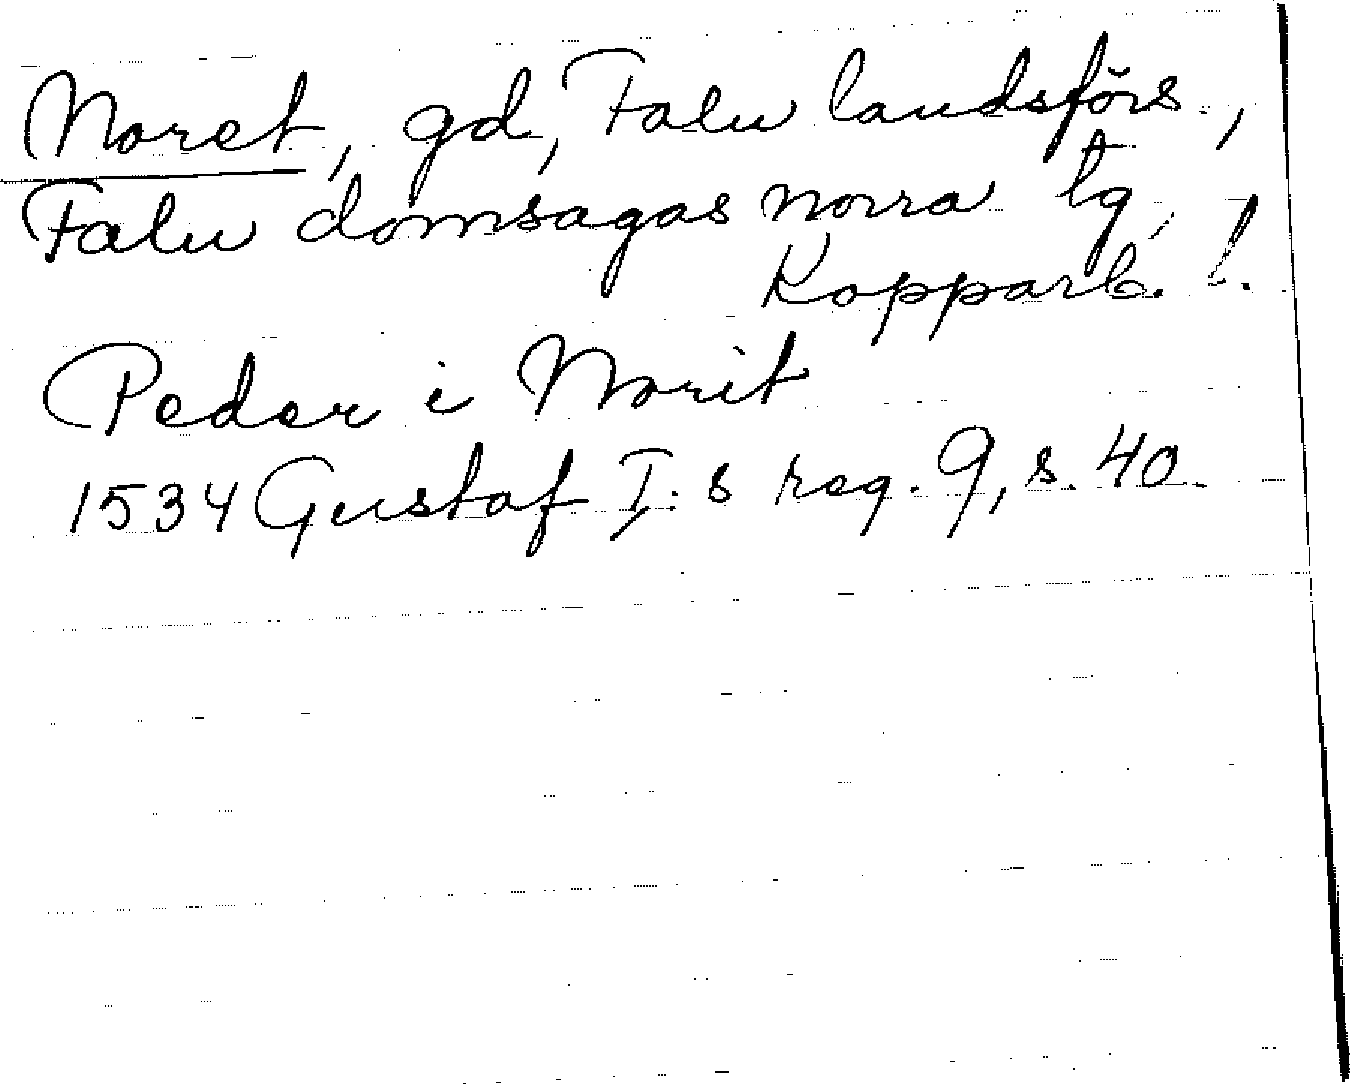 Noret, gd, Falu landsförs.,
Falu domsagas norra tg,
Kopparb. l.
Peder i Norit
1534 Gustaf I:s reg. 9, s. 40.